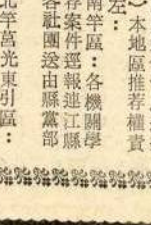 ）本地區推荐權責
左：
南竿區：各機關學
荐案件逕報連江縣
各社團送由縣黨部
北竿莒光東引區：